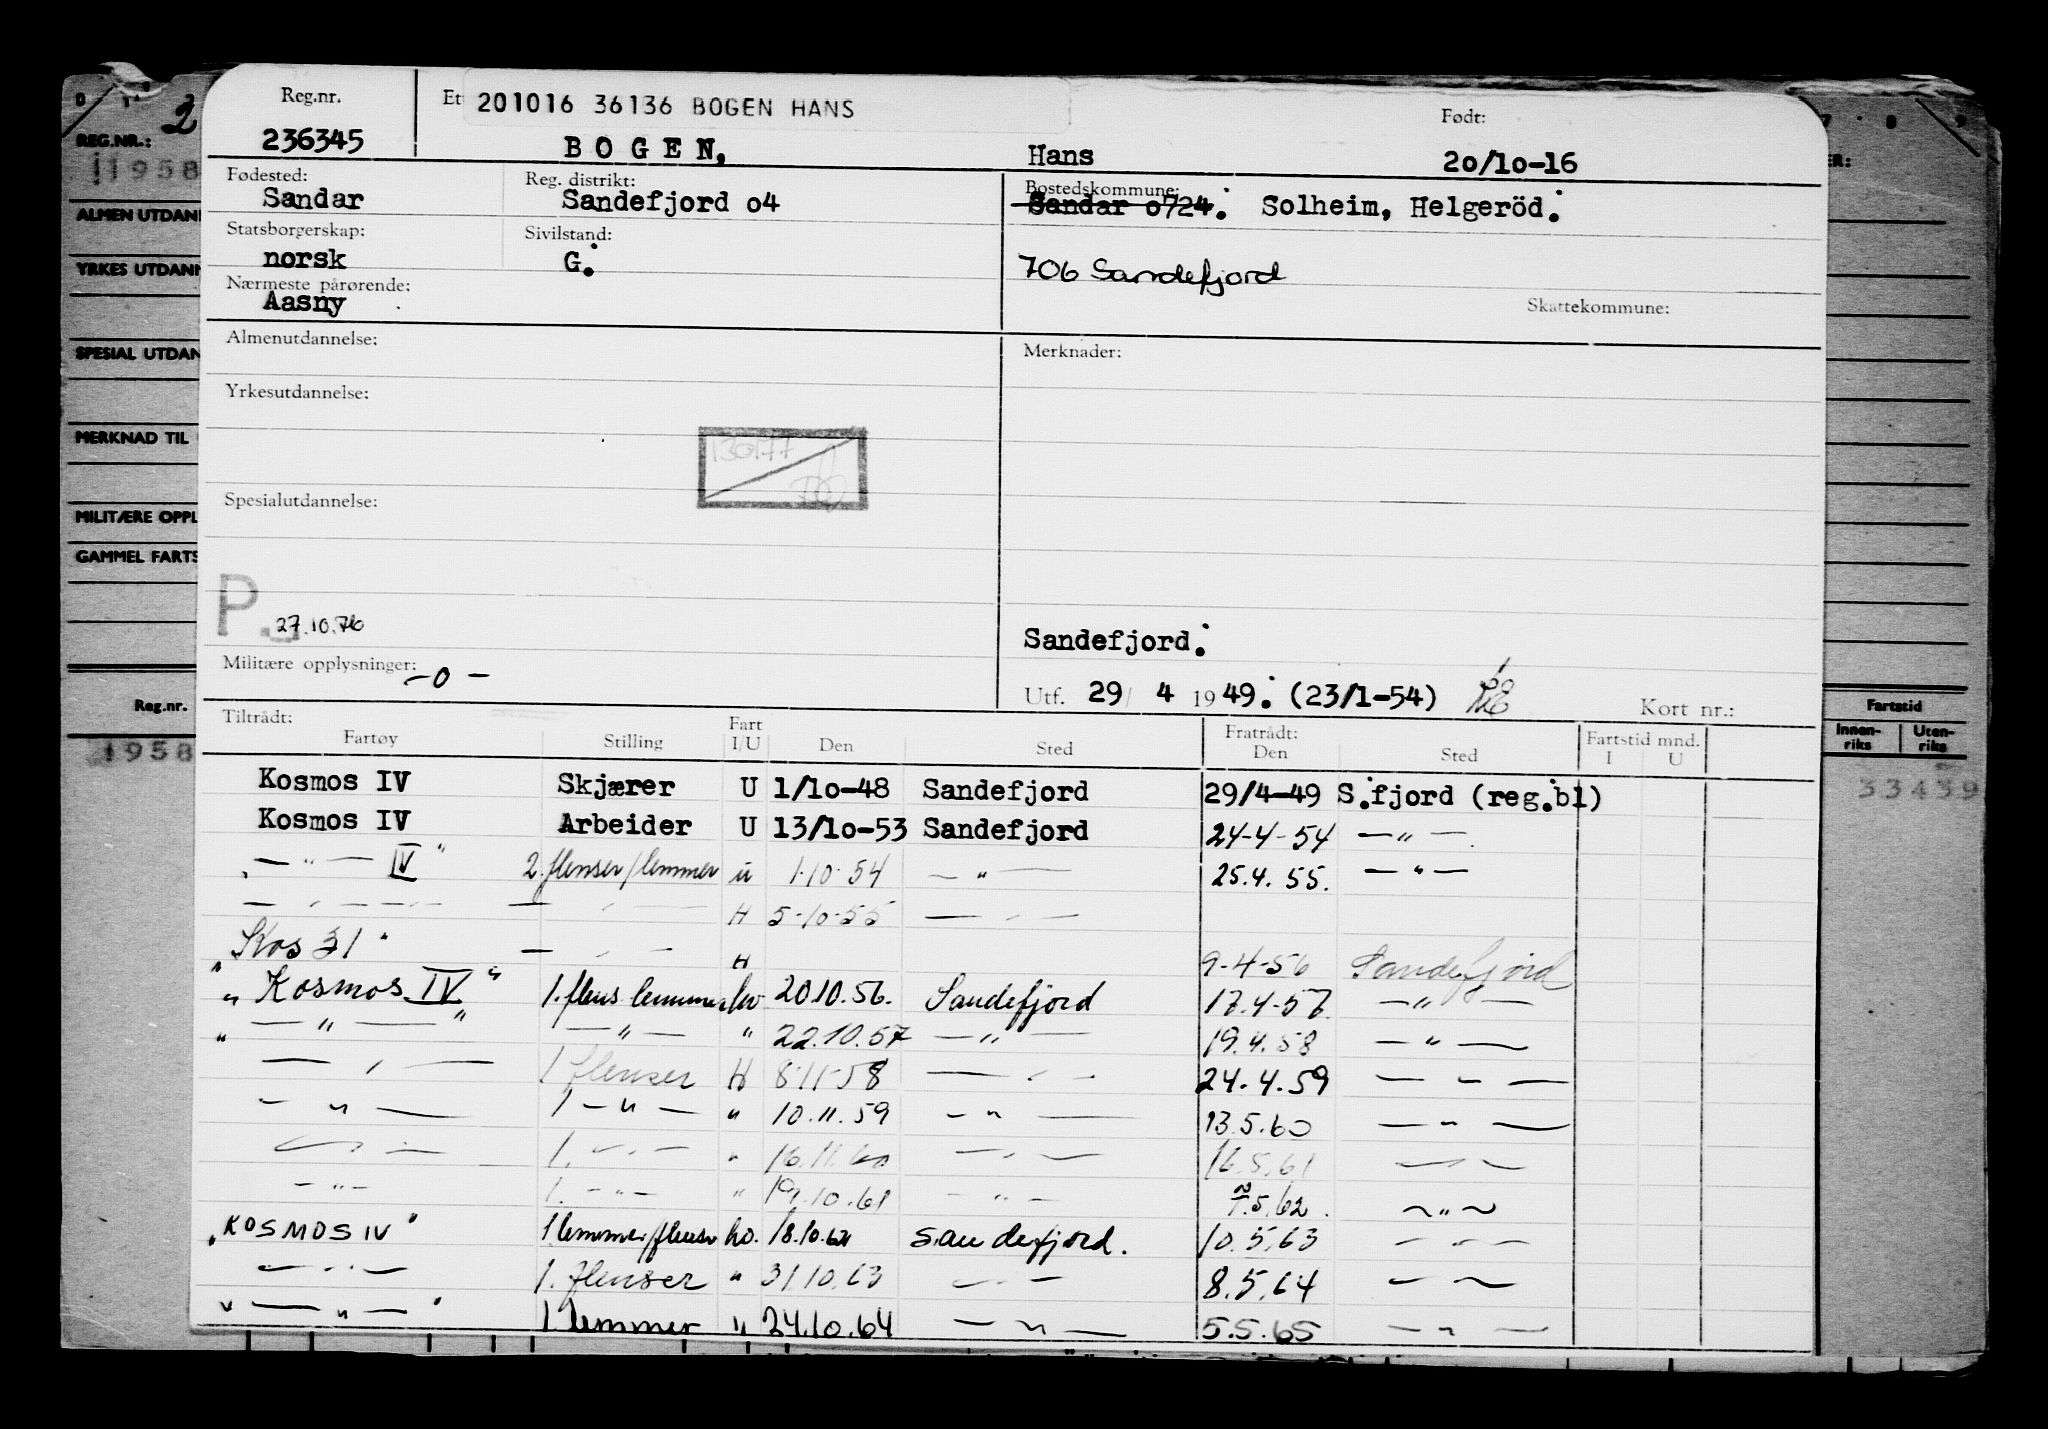 Reg.nr. Et 201016 36136 BOGEN HANS Født:
236345 BOGEN, Hans 20/10-16
Fødested: Reg. distrikt: Bostedskommune:
Sandar Sandefjord o4 Sandar o724. Solheim, Helgeröd.
Statsborgerskap: Sivilstand:
norsk G. 706 Sandefjord
Nærmeste pårørende:
Aasny Skattekommune:
Almenutdannelse: Merknader:
Yrkesutdannelse:
130177
Spesialutdannelse:
P.
27.10.76 Sandefjord.
Militære opplysninger: -0-
Utf. 29/ 4 1949. (23/1-54) Kort nr.:
Tiltrådt: Fart Fratrådt: Fartstid mnd.
Fartøy Stilling I/U Den Sted Den Sted I U
Kosmos IV Skjærer U 1/10-48 Sandefjord 29/4-49 S.fjord (reg.bl)
Kosmos IV Arbeider U 13/10-53 Sandefjord 24-4-54 — " —
— " — IV " 2. flenser/lemmer u 1.10.54 — " — 25.4.55. — " —
— " — — " — H 5-10-55 — " —
"Kos 31" — " — H 9-4-56 Sandefjord
"Kosmos IV" 1. flens lemmer hv 20.10.56. Sandefjord 17.4-57. — " —
" — " — " — " — " 22.10.57 — " — 19.4.58 — " —
— " — 1 flenser H 8-11-58 — " — 24.4.59 — " —
— " — 1 — " — " 10.11.59 — " — 13.5.60 — " —
— " — 1. — " — " 16.11.60 — " — 16.5.61 — " —
— " — 1. — " — " 19.10.61 — " — 7.5.62. — " —
"KOSMOS IV" 1 lemmer/flenser ho. 18.10.62 Sandefjord. 10.5.63 — " —
— " — 1. flenser " 31.10.63 — " — 8.5.64 — " —
" — " — " 1. lemmer " 24.10.64 — " — 5.5.65 — " —
REG.NR.:
1958
ALMEN UTDAN
YRKES UTDAN
SPESIAL UTDAN
MERKNAD TIL
MILITÆRE OPPL
GAMMEL FARTS
Reg.nr.
1958
Fartstid
Innen-riks Uten-riks
33439